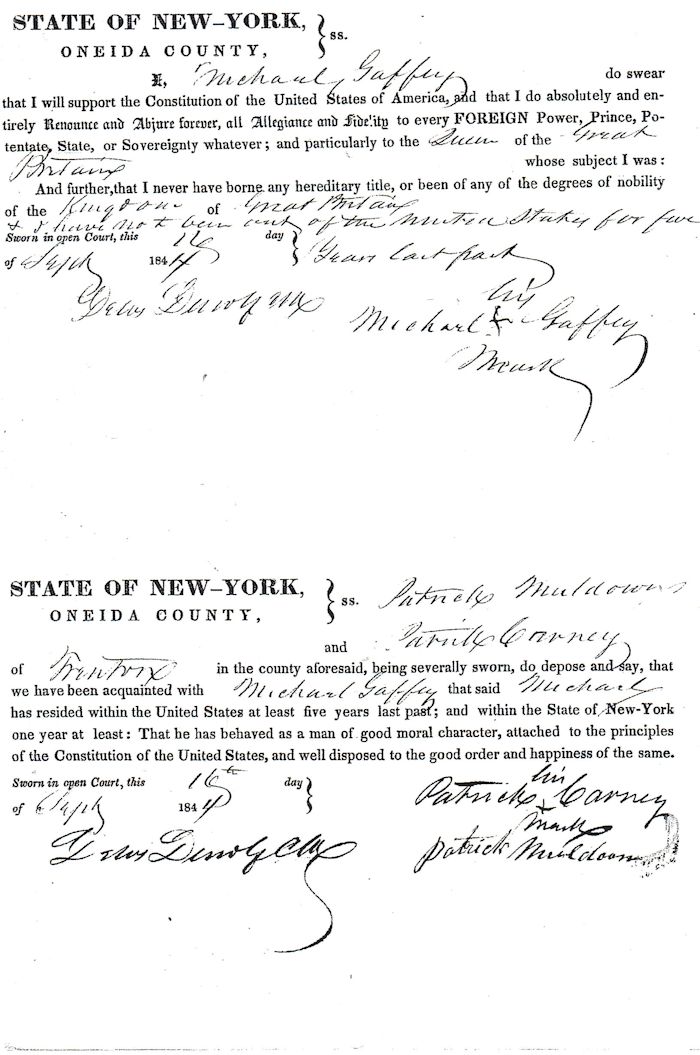 STATE OF NEW-YORK, } ss.
ONEIDA COUNTY,
I, Michael Gaffey do swear
that I will support the Constitution of the United States of America, and that I do absolutely and en-
tirely Renounce and Abjure forever, all Allegiance and Fidelity to every FOREIGN Power, Prince, Po-
tentate, State, or Sovereignty whatever; and particularly to the Queen of the Great
Britain whose subject I was:
And further, that I never have borne any hereditary title, or been of any of the degrees of nobility
of the Kingdom of Great Britain
& I have not been out of the United States for five
Sworn in open Court, this 16 day } Years last past
of Sept 1844
his
Michael + Gaffey
Mark
STATE OF NEW-YORK, } ss. Patrick Muldown
ONEIDA COUNTY,
and Patrick Carney
of Trenton in the county aforesaid, being severally sworn, do depose and say, that
we have been acquainted with Michael Gaffey that said Michael
has resided within the United States at least five years last past; and within the State of New-York
one year at least: That he has behaved as a man of good moral character, attached to the principles
of the Constitution of the United States, and well disposed to the good order and happiness of the same.
Sworn in open Court, this 16th day }
of Sept 1844
his
Patrick + Carney
Mark
Patrick Muldoon